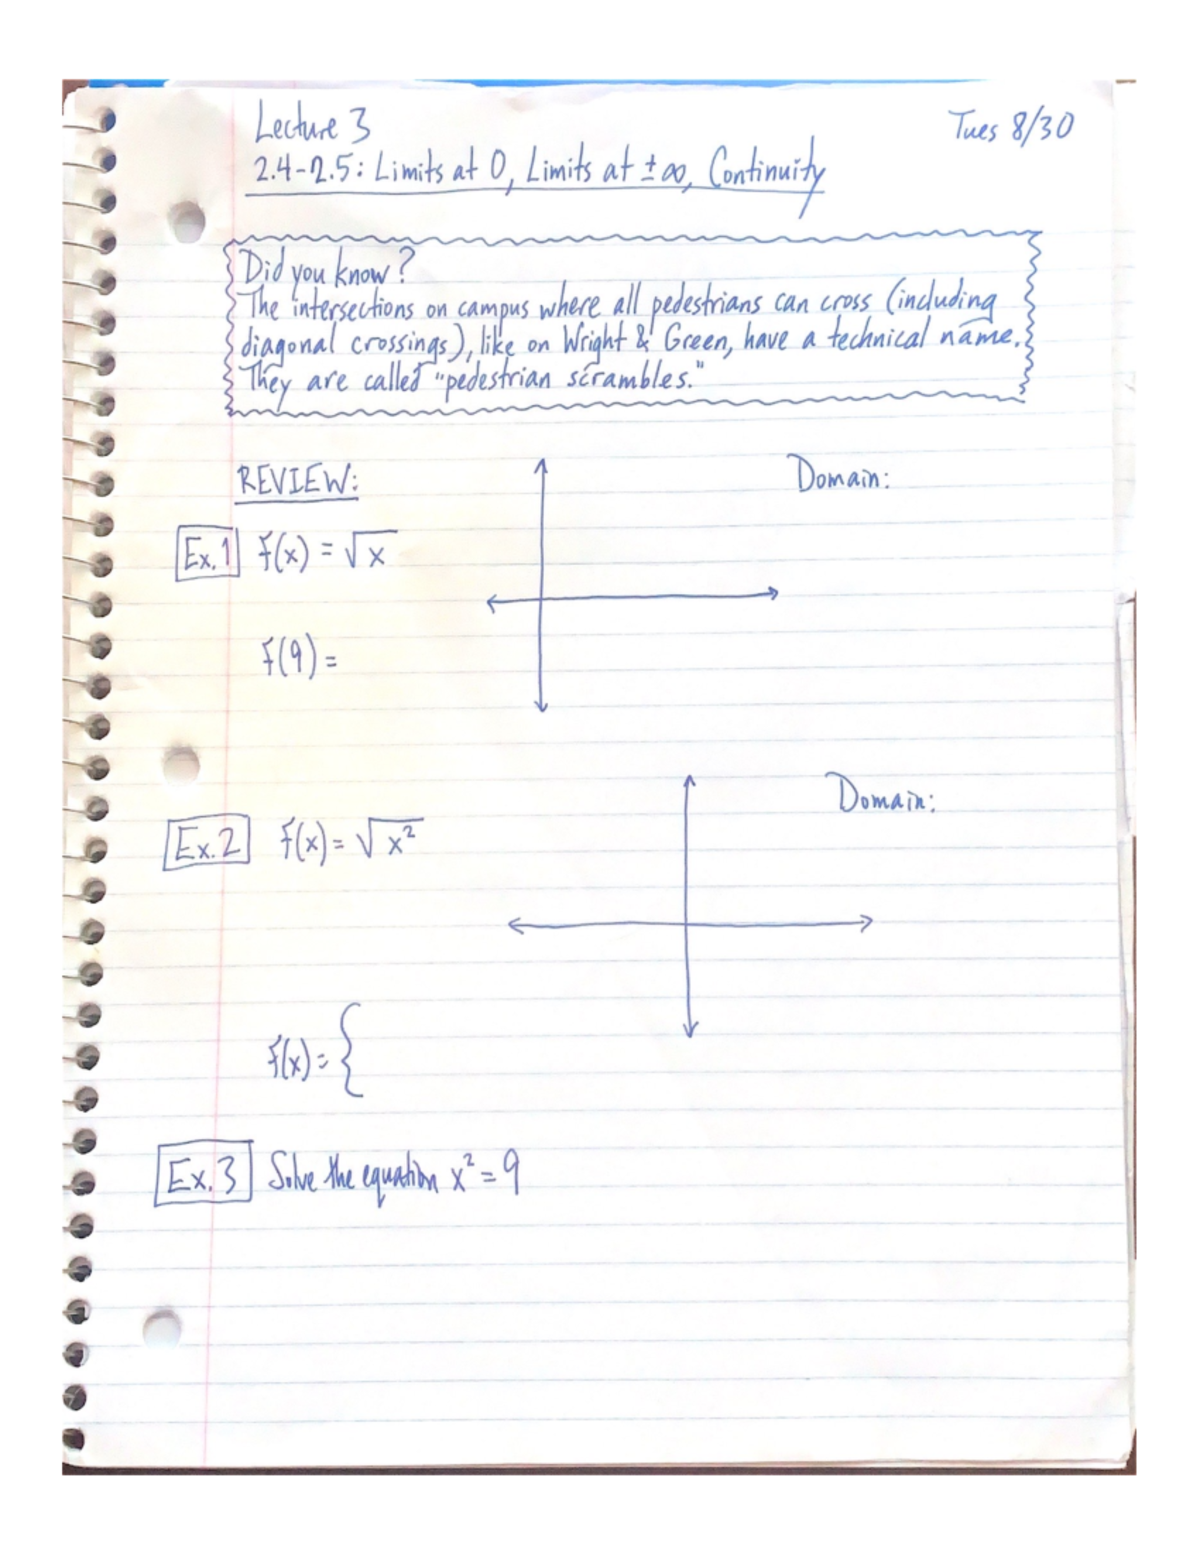 Lecture 3
Tues 8/30
2.4-2.5: Limits at 0, Limits at ±∞, Continuity
Did you know?
The intersections on campus where all pedestrians can cross (including
diagonal crossings), like on Wright & Green, have a technical name.
They are called "pedestrian scrambles."
REVIEW:
Domain:
Ex.1 f(x) = √x
f(9) =
Domain:
Ex.2 f(x) = √x²
f(x) = {
Ex.3 Solve the equation x² = 9